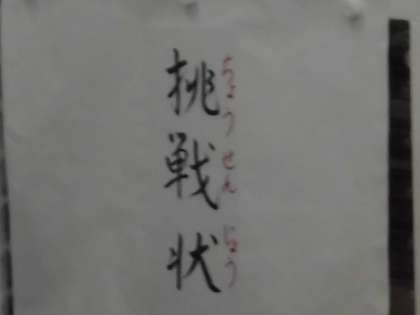 挑戦状
ちょうせんじょう